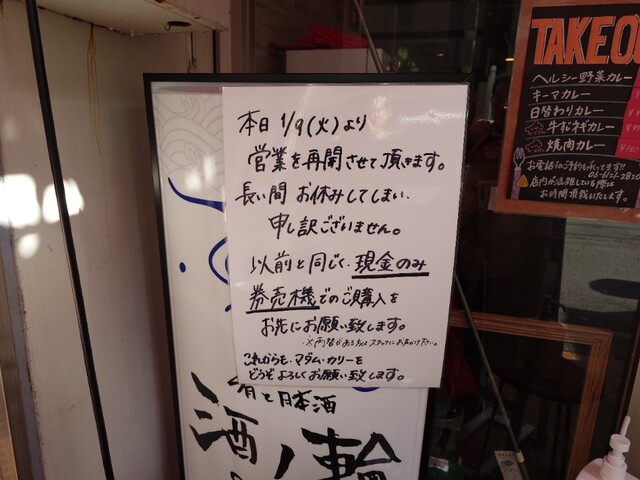 本日 1/9(火)より
営業を再開させて頂きます。
長い間 お休みしてしまい、
申し訳ございません。
以前と同じく、現金のみ
券売機でのご購入を
お先にお願い致します。
※両替がある方はスタッフにお声かけ下さい。
これからも、マダム・カリーを
どうぞよろしくお願い致します。
肴と日本酒
酒ノ輪
TAKEO
ヘルシー野菜カレー
キーマカレー
日替わりカレー
牛すじネギカレー
焼肉カレー
お電話でのご予約も承ってます!!
店内が混雑している際は
お時間頂戴いたします。